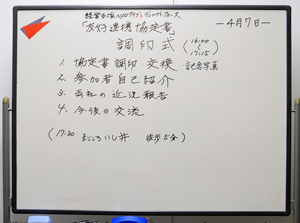 経営支援NPOクラブとテンプルフォース
「友好連携協定書」
調印式 (16:00 ~ 17:15)
—4月7日—
1. 協定書調印・交換 記念写真
2. 参加者自己紹介
3. 両社の近況報告
4. 今後の交流
(17:30 まごころ いし井 徒歩5分)